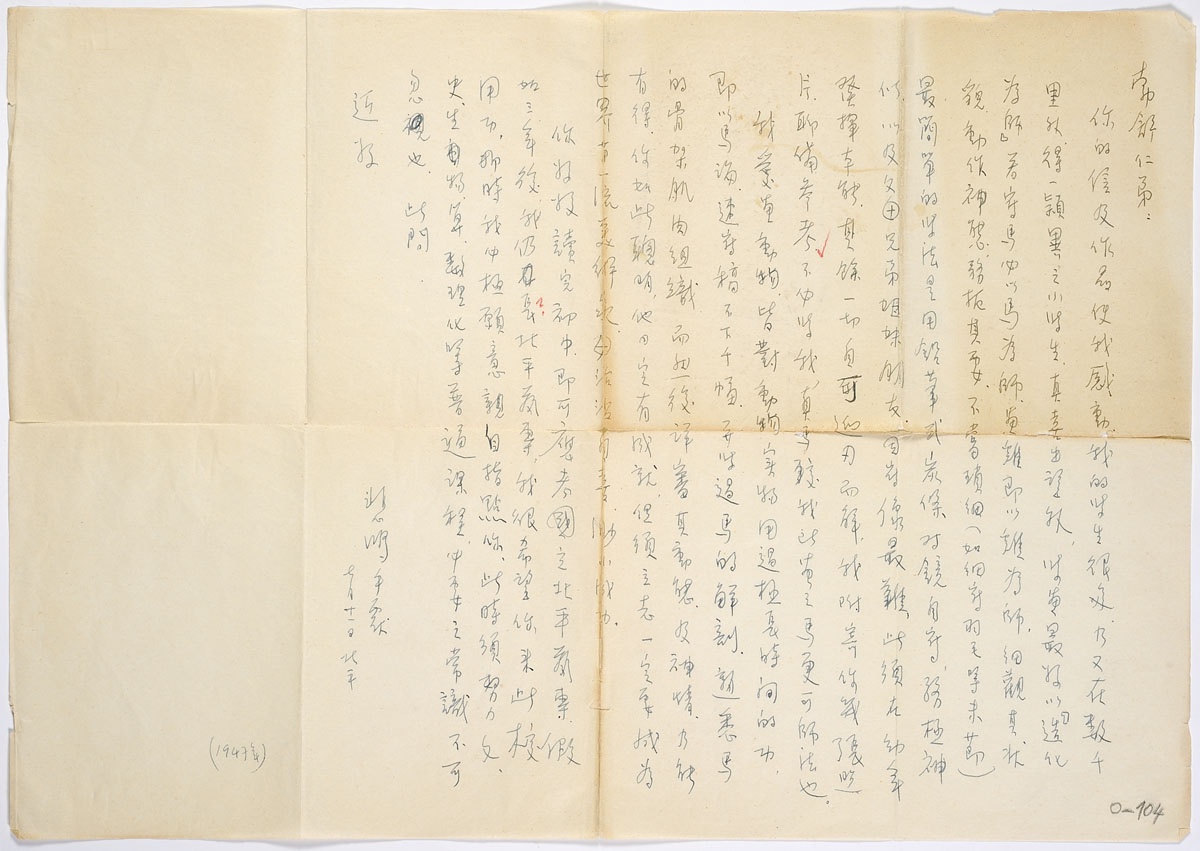 勃舒仁弟：
你的信及作品使我感動，我的学生很多，乃又在数千
里外得一穎異之小学生，真喜出望外，学畫最好以「造化
為師」，若寫馬必以馬為師，畫雞即以雞為師，細觀其状
貌、動作、神態，務扼其要，不尚瑣細（如細寫羽毛等末節）
最簡單的学法是用鉛筆或炭條对鏡自寫，務極神
似，以及父母兄弟姐妹朋友，因寫像最難，此須在幼年
發揮本能，其餘一切自可迎刃而解，我附寄你幾張照
片，聊備参考，不必学我，真馬較我所畫之馬更可師法也。
我愛畫動物，皆對動物實物用過極長時间的功，
即以馬論，速寫稿不下千幅，并学過馬的解剖，熟悉馬
的骨架肌肉組織，而然後詳審其動態及神情，乃能
有得，你如此聰明，他日定有成就，但須立志一定要成為
世界第一流美術家，毋沾沾自喜渺小成功。
你好好讀完初中，即可應考國立北平藝專，假
如三年後，我仍長北平藝專，我很希望你来此校
用功，那時我必極願意親自指點你，此時須努力文、
史、生物、算、數理化等普通課程，必要之常識不可
忽視也，此問
近好
悲鴻手啟
七月十一日 北平
（1947年）
0-104